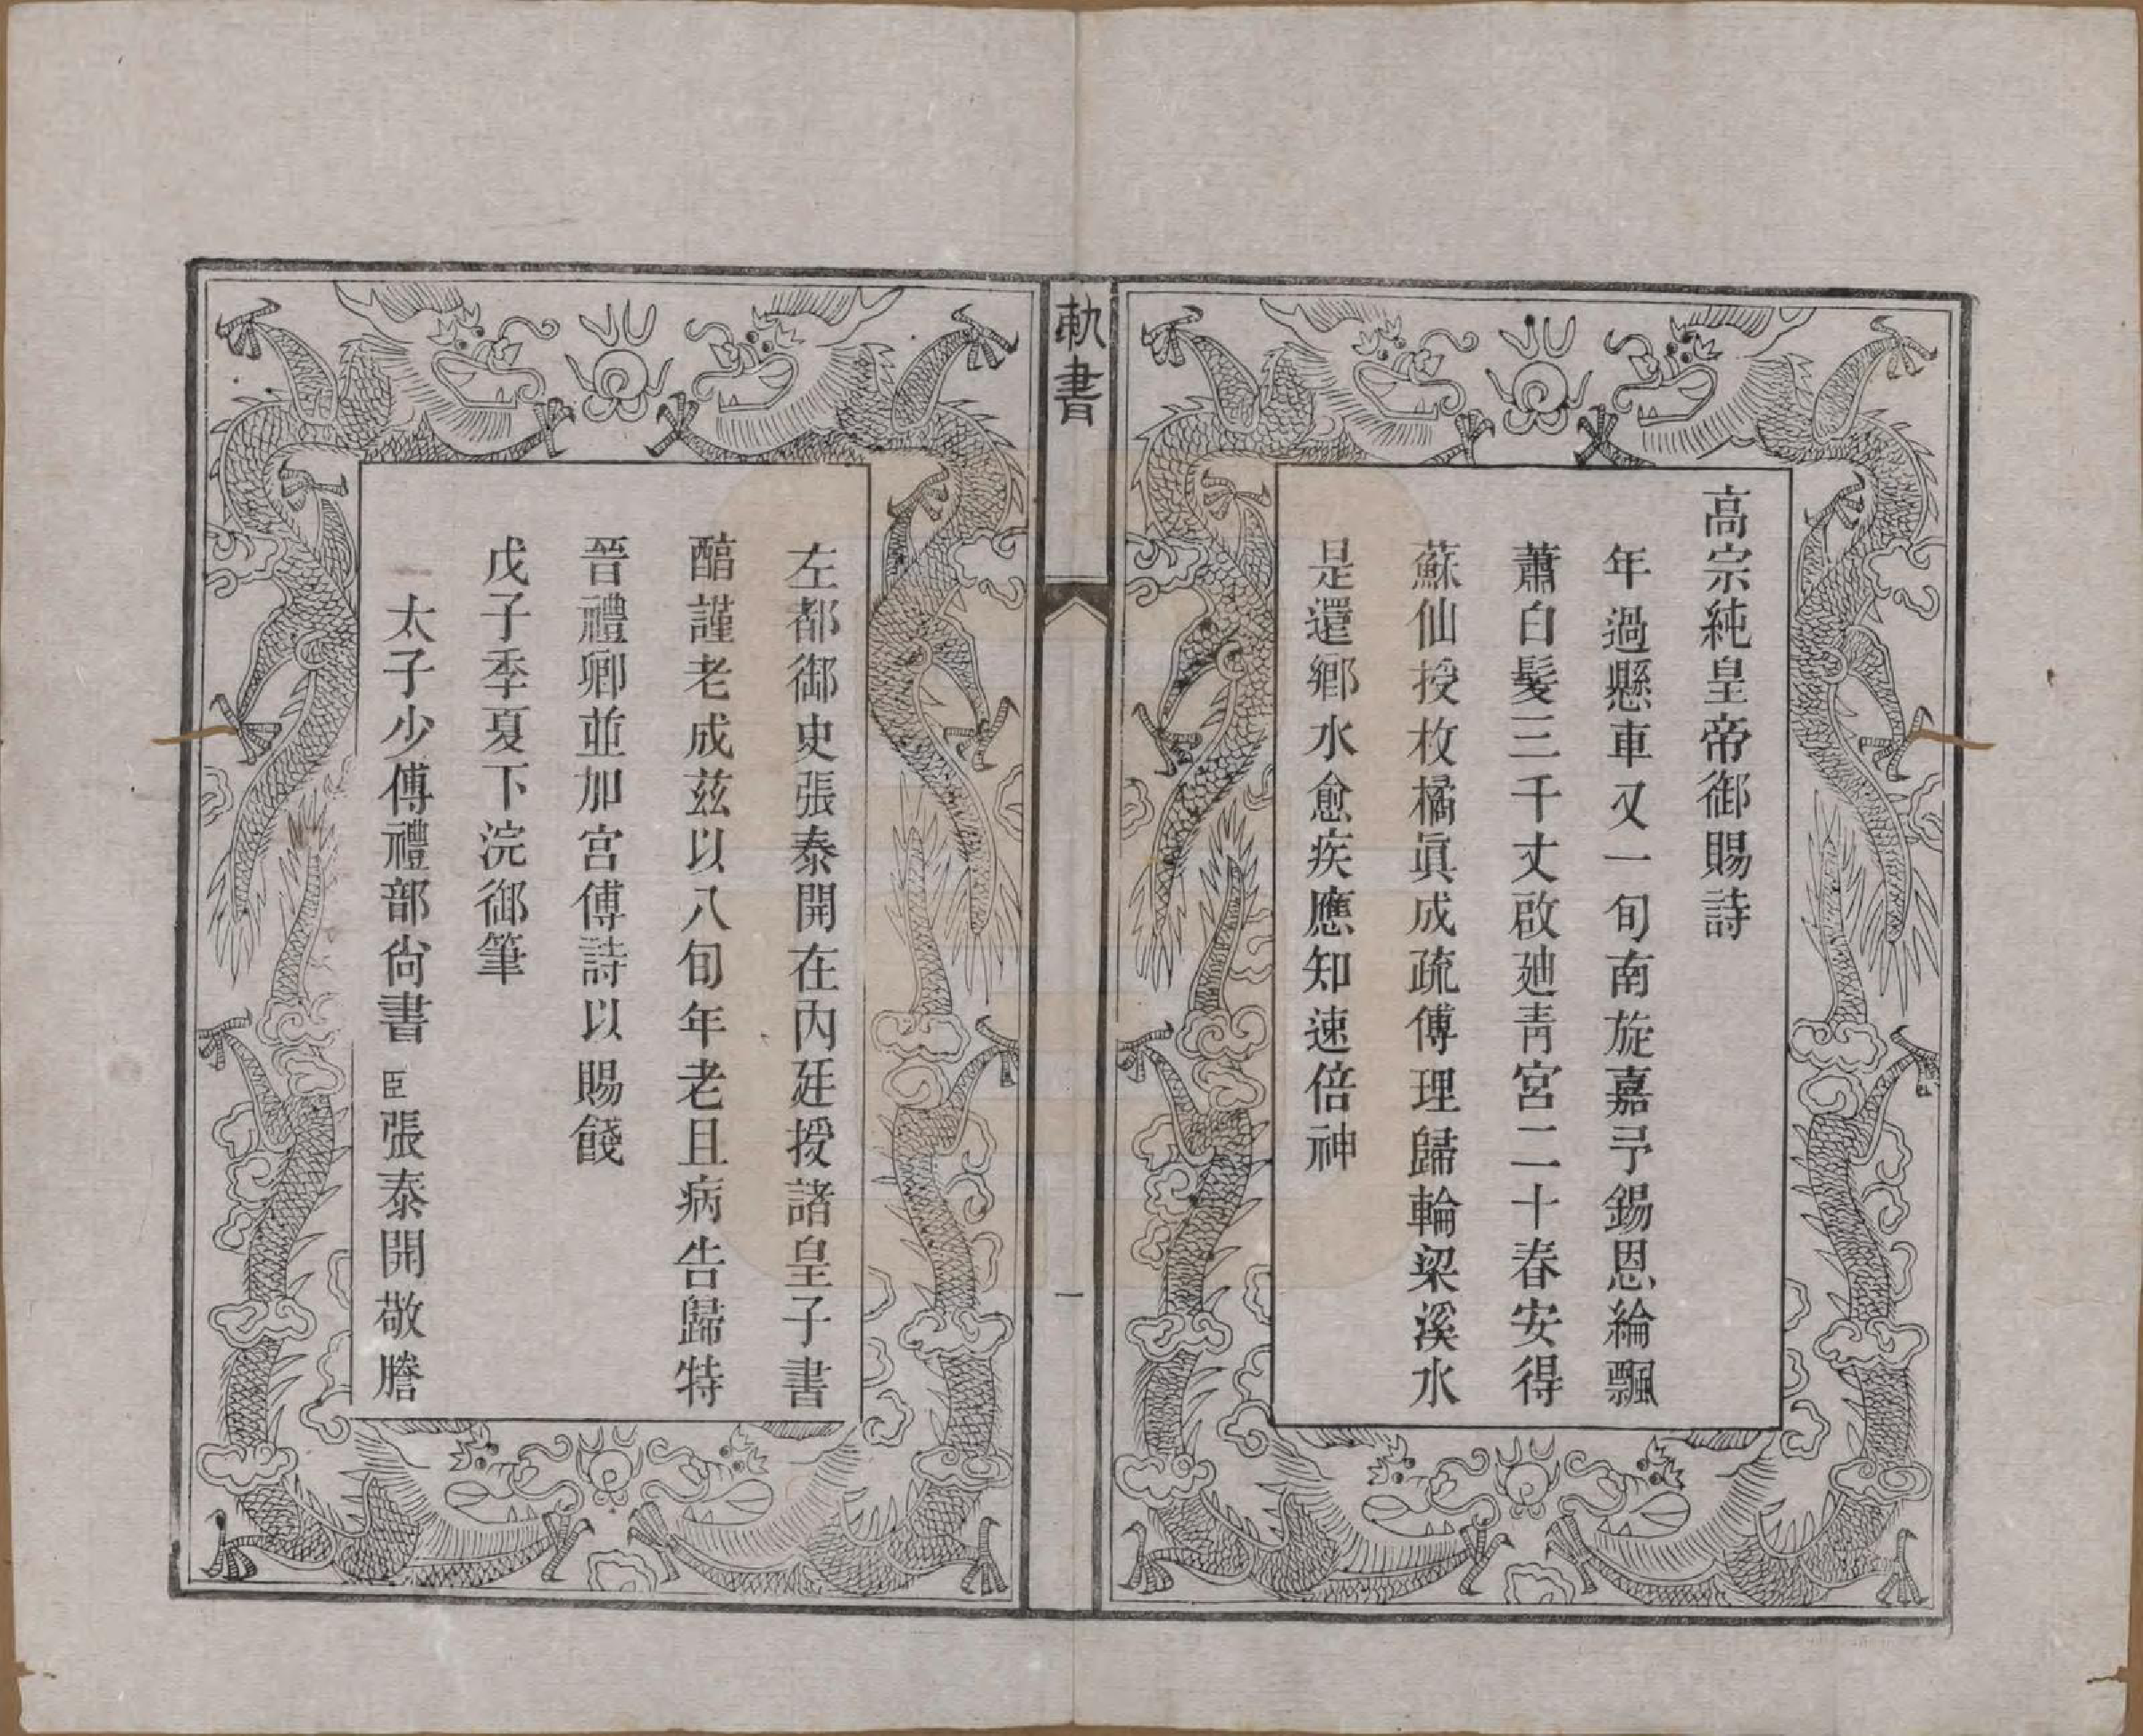 高宗純皇帝御賜詩
年過懸車又一旬南旋嘉予錫恩綸飄
蕭白髮三千丈啟廸靑宮二十春安得
蘇仙授枚橘眞成疏傅理歸輪梁溪水
是還鄉水愈疾應知速倍神
勅書
一
左都御史張泰開在內廷授諸皇子書
醕謹老成茲以八旬年老且病告歸特
晉禮卿並加宮傅詩以賜餞
戊子季夏下浣御筆
太子少傅禮部尙書臣張泰開敬謄